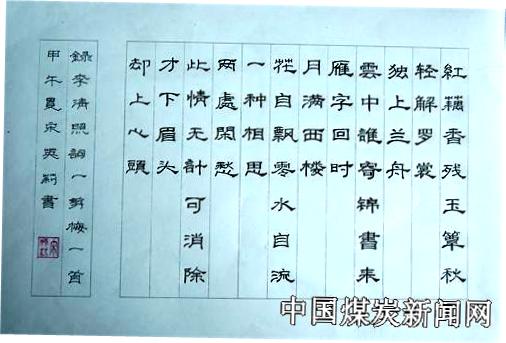 紅藕香残玉簟秋
轻解罗裳
独上兰舟
雲中誰寄锦書来
雁字回时
月满西楼
花自飘零水自流
一种相思
两處閑愁
此情无計可消除
才下眉头
却上心頭
錄李清照詞一剪梅一首
甲午夏宋英莉書
中国煤炭新闻网